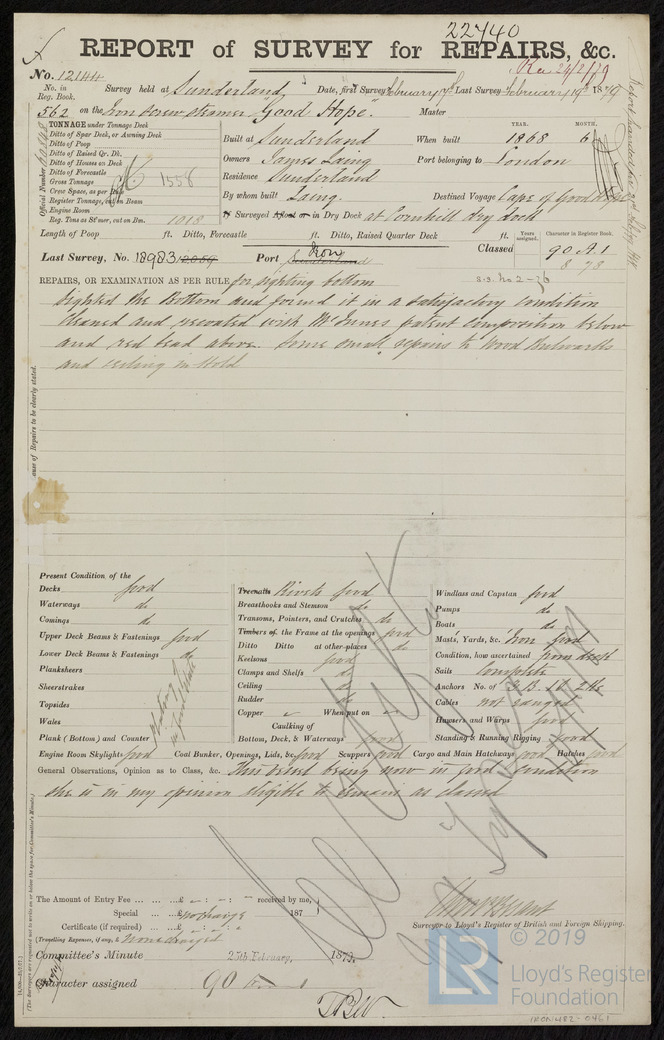 22740
REPORT of SURVEY for REPAIRS, &c.
No. 12144
No. in Reg. Book. Survey held at Sunderland Date, first Survey February Last Survey February 19th 1879
562 on the Iron Screw Steamer "Good Hope". Master
TONNAGE under Tonnage Deck
Ditto of Spar Deck, or Awning Deck
Ditto of Poop
Ditto of Raised Qr. Dk.
Ditto of Houses on Deck
Ditto of Forecastle
Gross Tonnage 1558
Crew Space, as per Rule
Register Tonnage, cut on Beam
Engine Room
Reg. Tons as St'mer, cut on Bm. 1013
Official Number
Built at Sunderland When built YEAR. 1868 MONTH. 6
Owners James Laing Port belonging to London
Residence Sunderland
By whom built Laing. Destined Voyage Cape of Good Hope
If Surveyed Afloat or in Dry Dock at Cornhill Dry Dock
Length of Poop ft. Ditto, Forecastle ft. Ditto, Raised Quarter Deck ft. Years assigned. Character in Register Book.
Last Survey, No. 18983 Port Iron Sunderland Classed 90 A.1
8 78
S.S. No 2-76
REPAIRS, OR EXAMINATION AS PER RULE for sighting bottom
Sighted the Bottom and found it in a satisfactory condition
cleaned and recoated with McInnes patent composition below
and red lead above. Some small repairs to wood Bulwarks
and ceiling in Hold
ause of Repairs to be clearly stated.
Present Condition of the
Decks good
Waterways do
Comings do
Upper Deck Beams & Fastenings good
Lower Deck Beams & Fastenings do
Planksheers
Sheerstrakes
Topsides
Wales
Plank (Bottom) and Counter
Treenails Rivets good
Breasthooks and Stemson do
Transoms, Pointers, and Crutches do
Timbers of the Frame at the openings good
Ditto Ditto at other places do
Keelsons good
Clamps and Shelfs do
Ceiling do
Rudder do
Copper When put on
Caulking of
Bottom, Deck, & Waterways good
Windlass and Capstan good
Pumps do
Boats do
Masts, Yards, &c. Iron good
Condition, how ascertained from deck
Sails Complete
Anchors No. of 3 B. 1 St. 2 Ks
Cables not ranged
Hawsers and Warps good
Standing & Running Rigging good
Engine Room Skylights good Coal Bunker, Openings, Lids, &c. good Scuppers good Cargo and Main Hatchways good Hatches good
General Observations, Opinion as to Class, &c. This vessel being now in good condition
she is in my opinion eligible to remain as classed
The Amount of Entry Fee £ : : received by me,
Special £ no charge 187
Certificate (if required) £ : :
(Travelling Expenses, if any, £ none charged
Surveyor to Lloyd's Register of British and Foreign Shipping.
Committee's Minute 25th February, 1879.
Character assigned 90
© 2019
LR
Lloyd's Register
Foundation
IRON482-0461